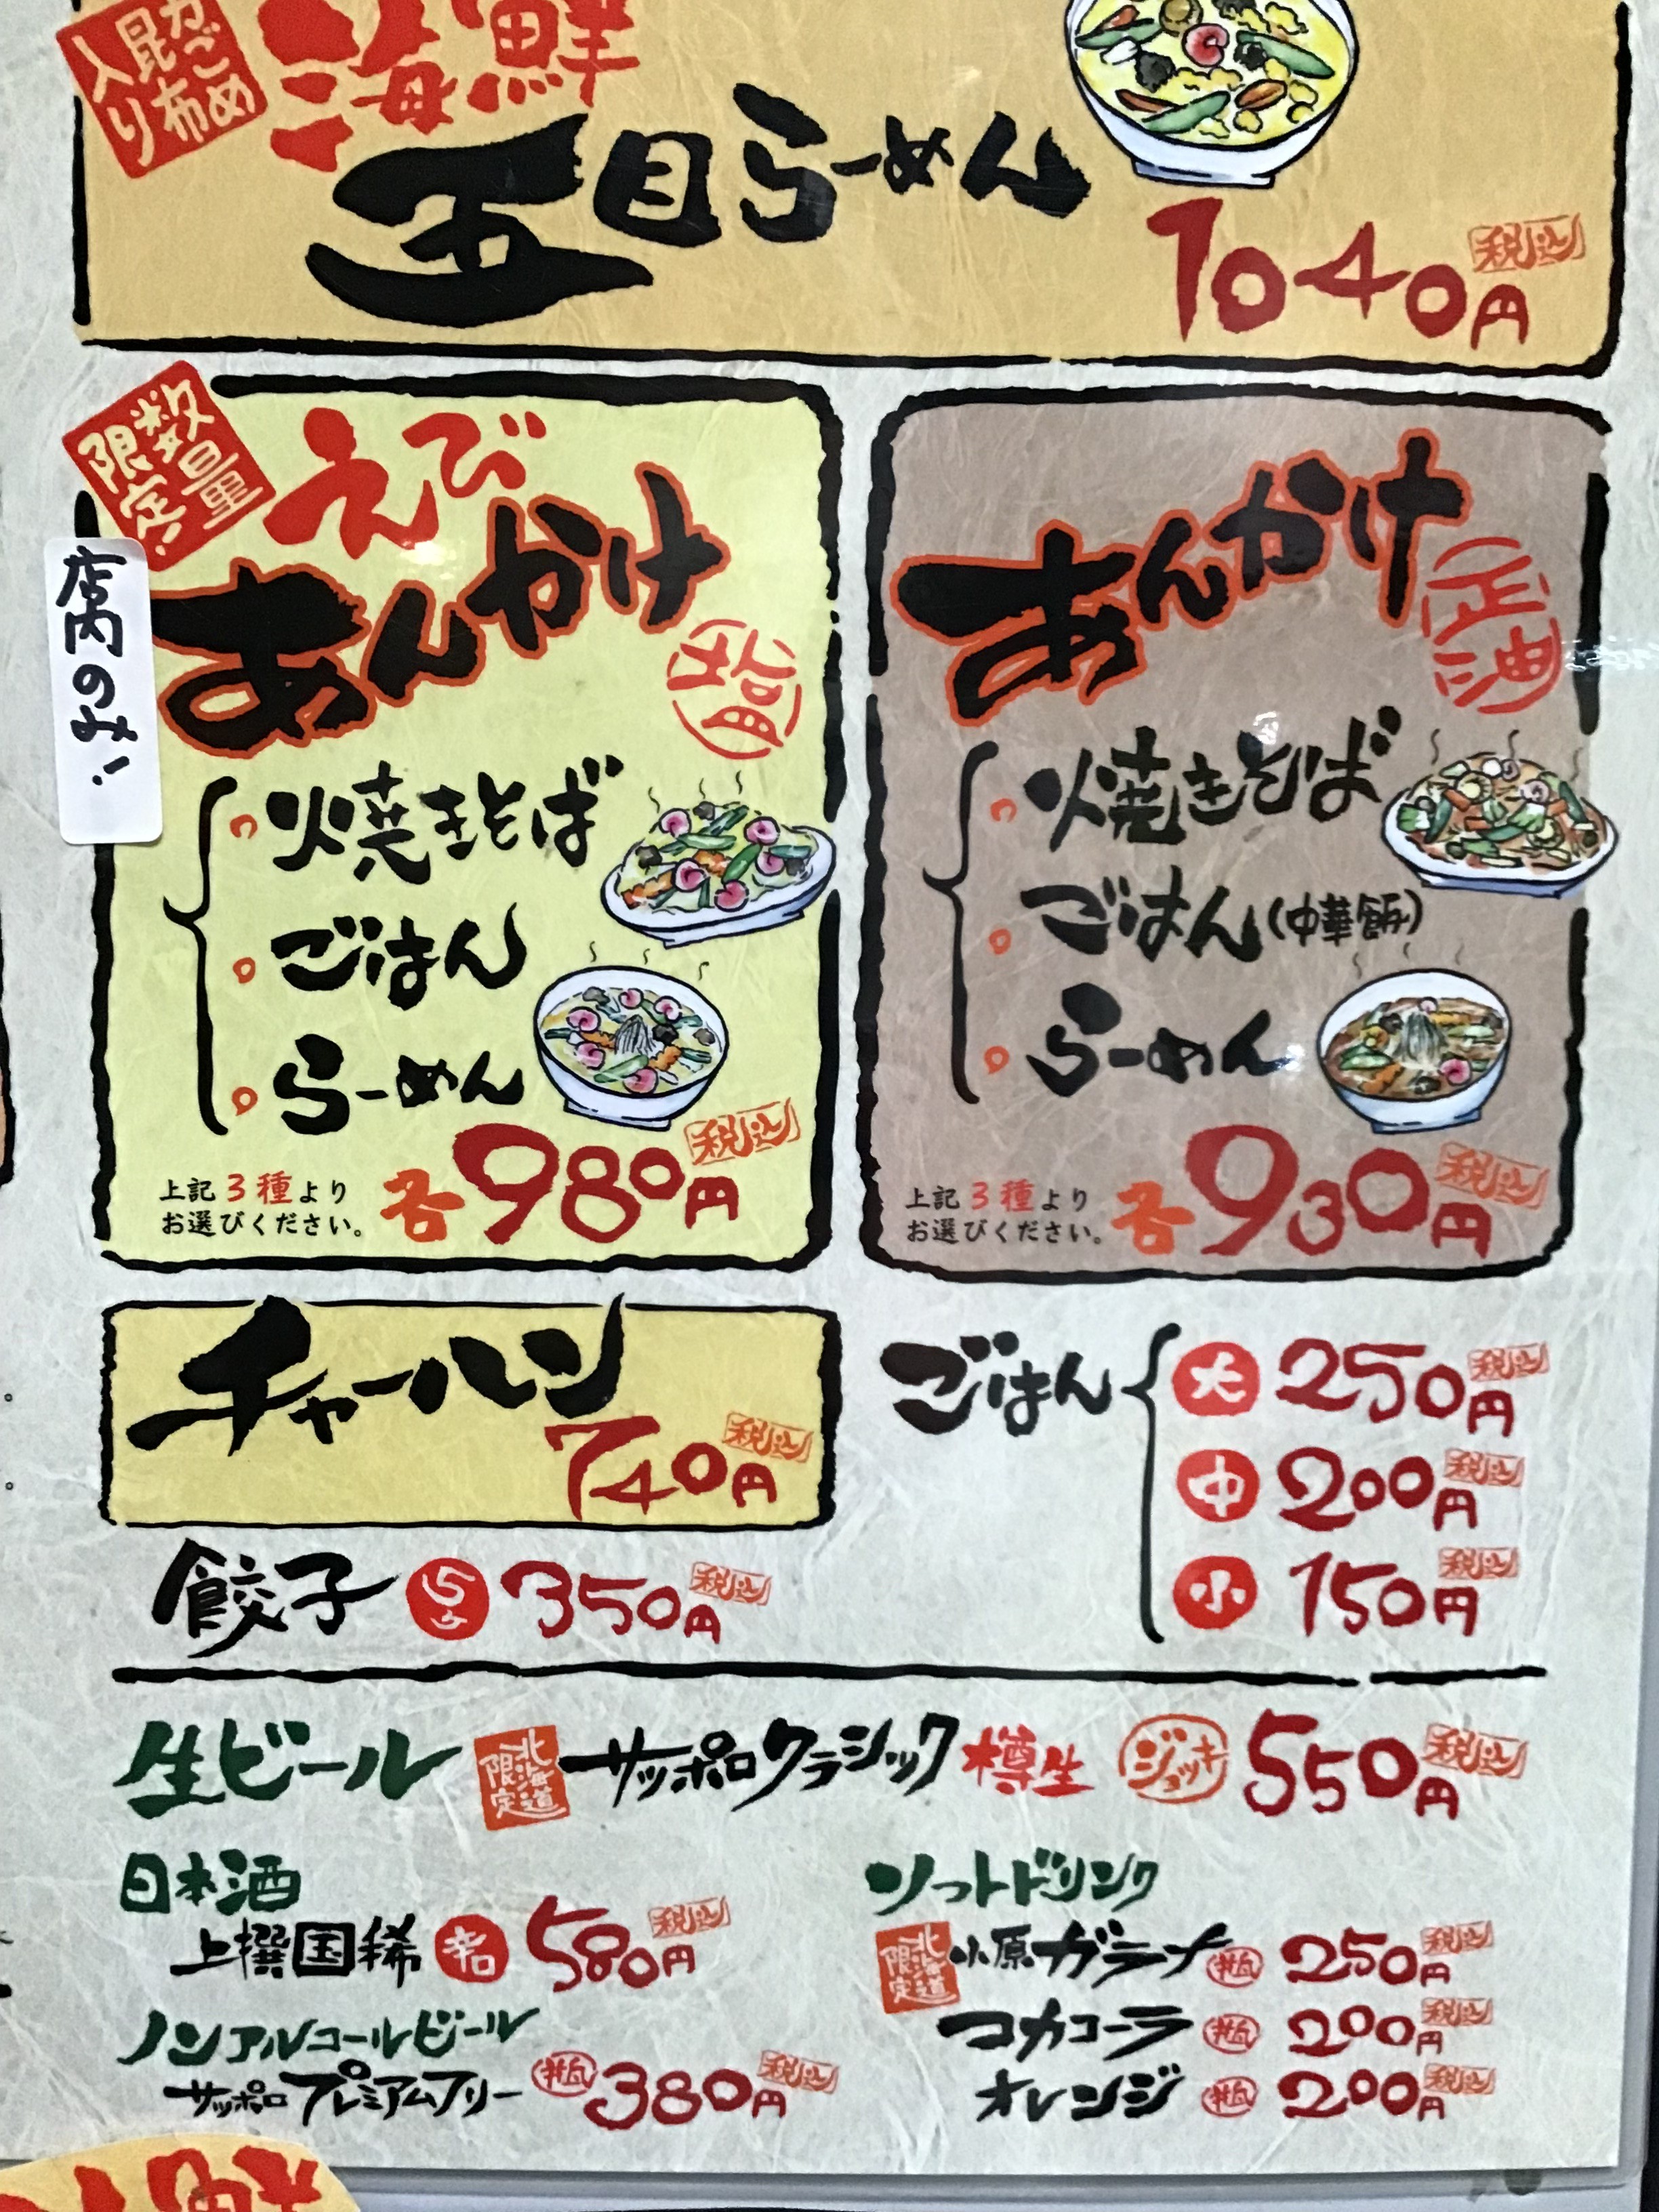 がごめ
昆布
入り
海鮮
五目らーめん
1040円 税込
数量
限定!
店内のみ!!
えび
あんかけ
塩
焼きそば
ごはん
らーめん
上記3種より
お選びください。
各980円 税込
あんかけ
正油
焼きそば
ごはん(中華飯)
らーめん
上記3種より
お選びください。
各930円 税込
チャーハン
740円 税込
餃子 5コ 350円 税込
ごはん
大 250円 税込
中 200円 税込
小 150円 税込
生ビール 北海道限定 サッポロクラシック 樽生 ジョッキ 550円 税込
日本酒
上撰国稀 580円 税込
ノンアルコールビール
サッポロプレミアムフリー 瓶 380円 税込
ソフトドリンク
北海道限定 小原ガラナ 瓶 250円 税込
コカコーラ 瓶 200円 税込
オレンジ 瓶 200円 税込